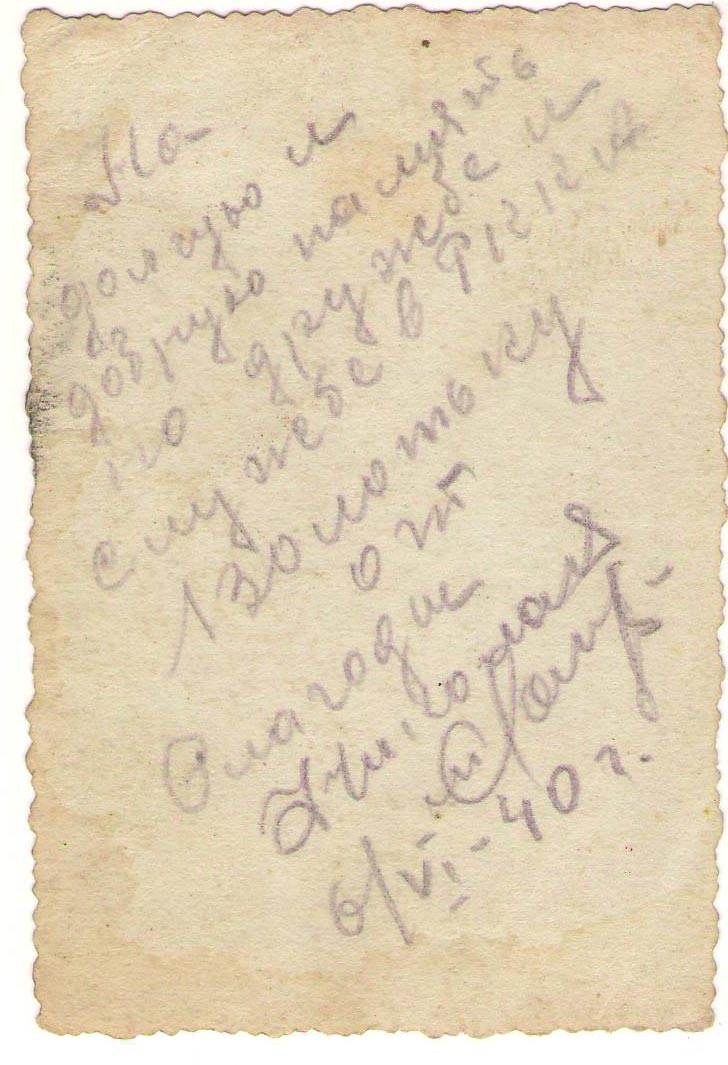 На
долгую и
добрую память
по дружебе и
службе в РККА
Золотьку
от
Благодир
Николая
6/VI-40 г.